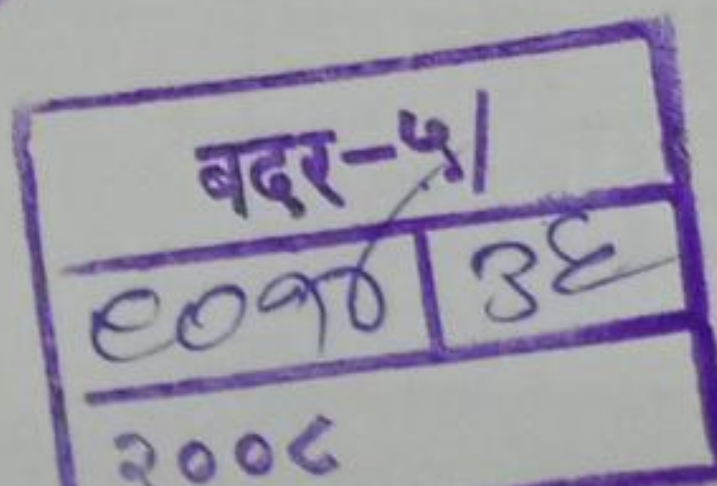 बदर-५/
९०१४ ३६
२००८